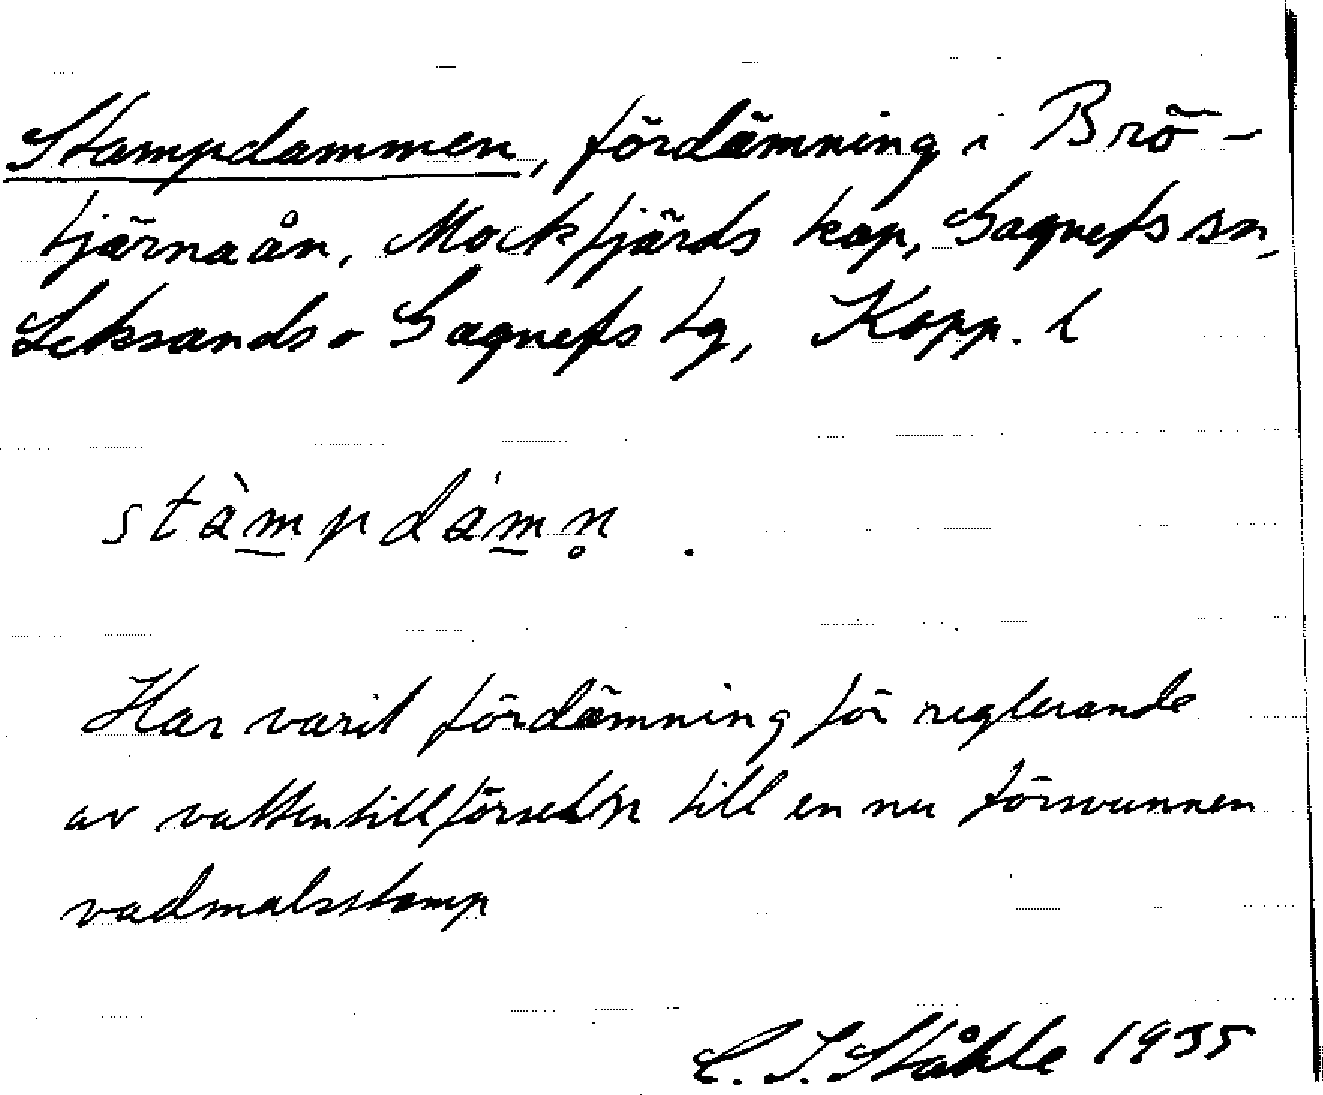 Stampdammen, fördämning i Brö-
tjärnaån, Mockfjärds kap, Gagnefs sn,
Leksands o Gagnefs tg, Kopp. l
stàmpdámn̥.
Har varit fördämning för reglerande
av vattentillförseln till en nu försvunnen
vadmalsstamp
C. I. Ståhle 1935